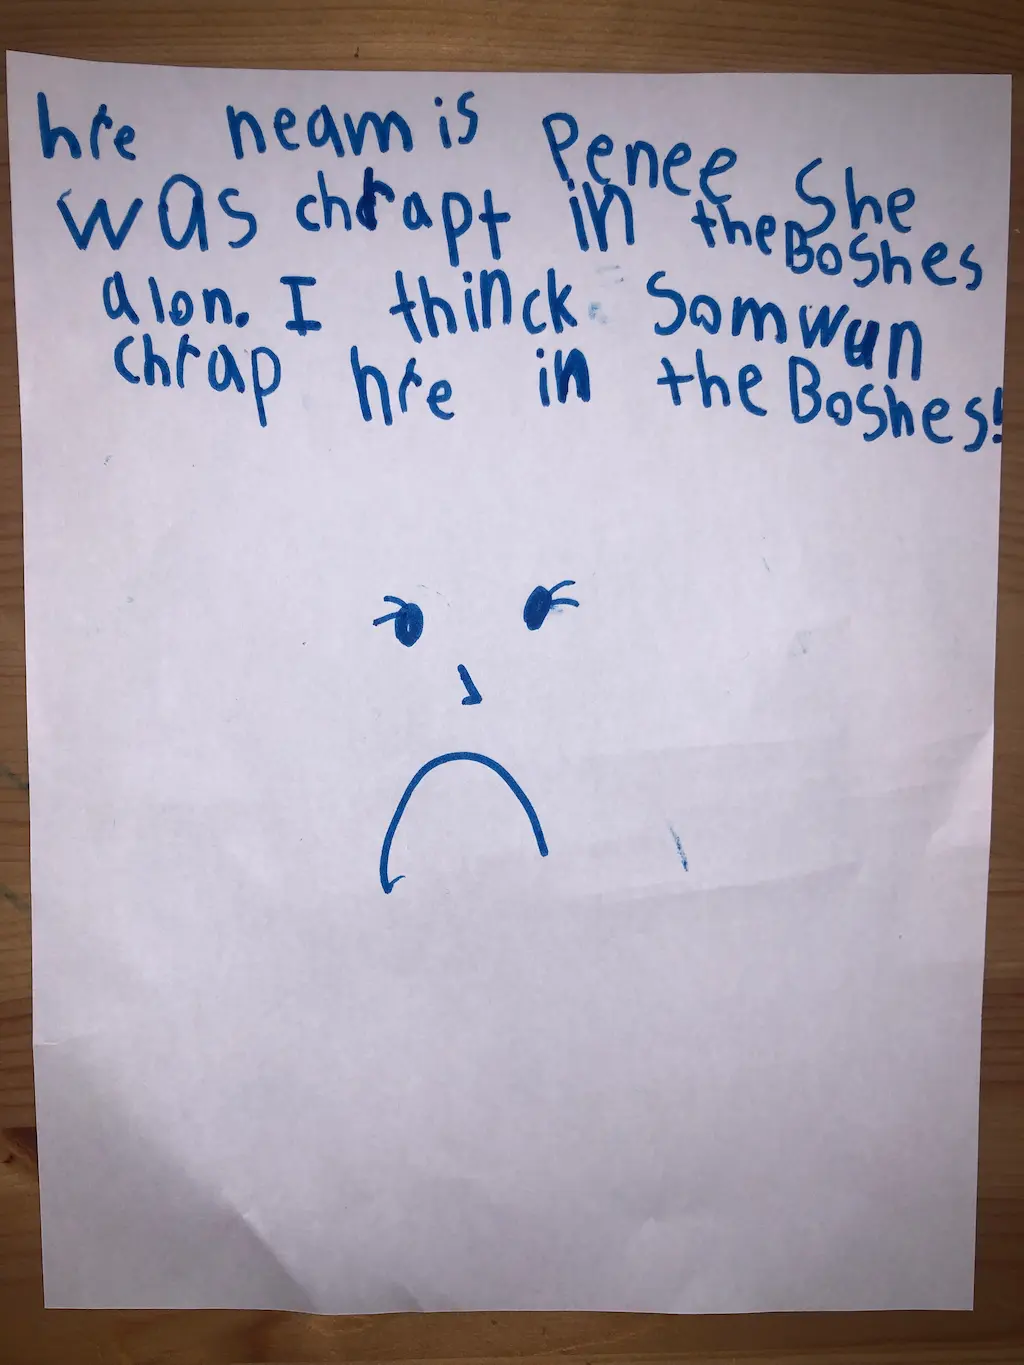 hre neam is Penee She
was chrapt in the Boshes
alon. I thinck Somwun
chrap hre in the Boshes!